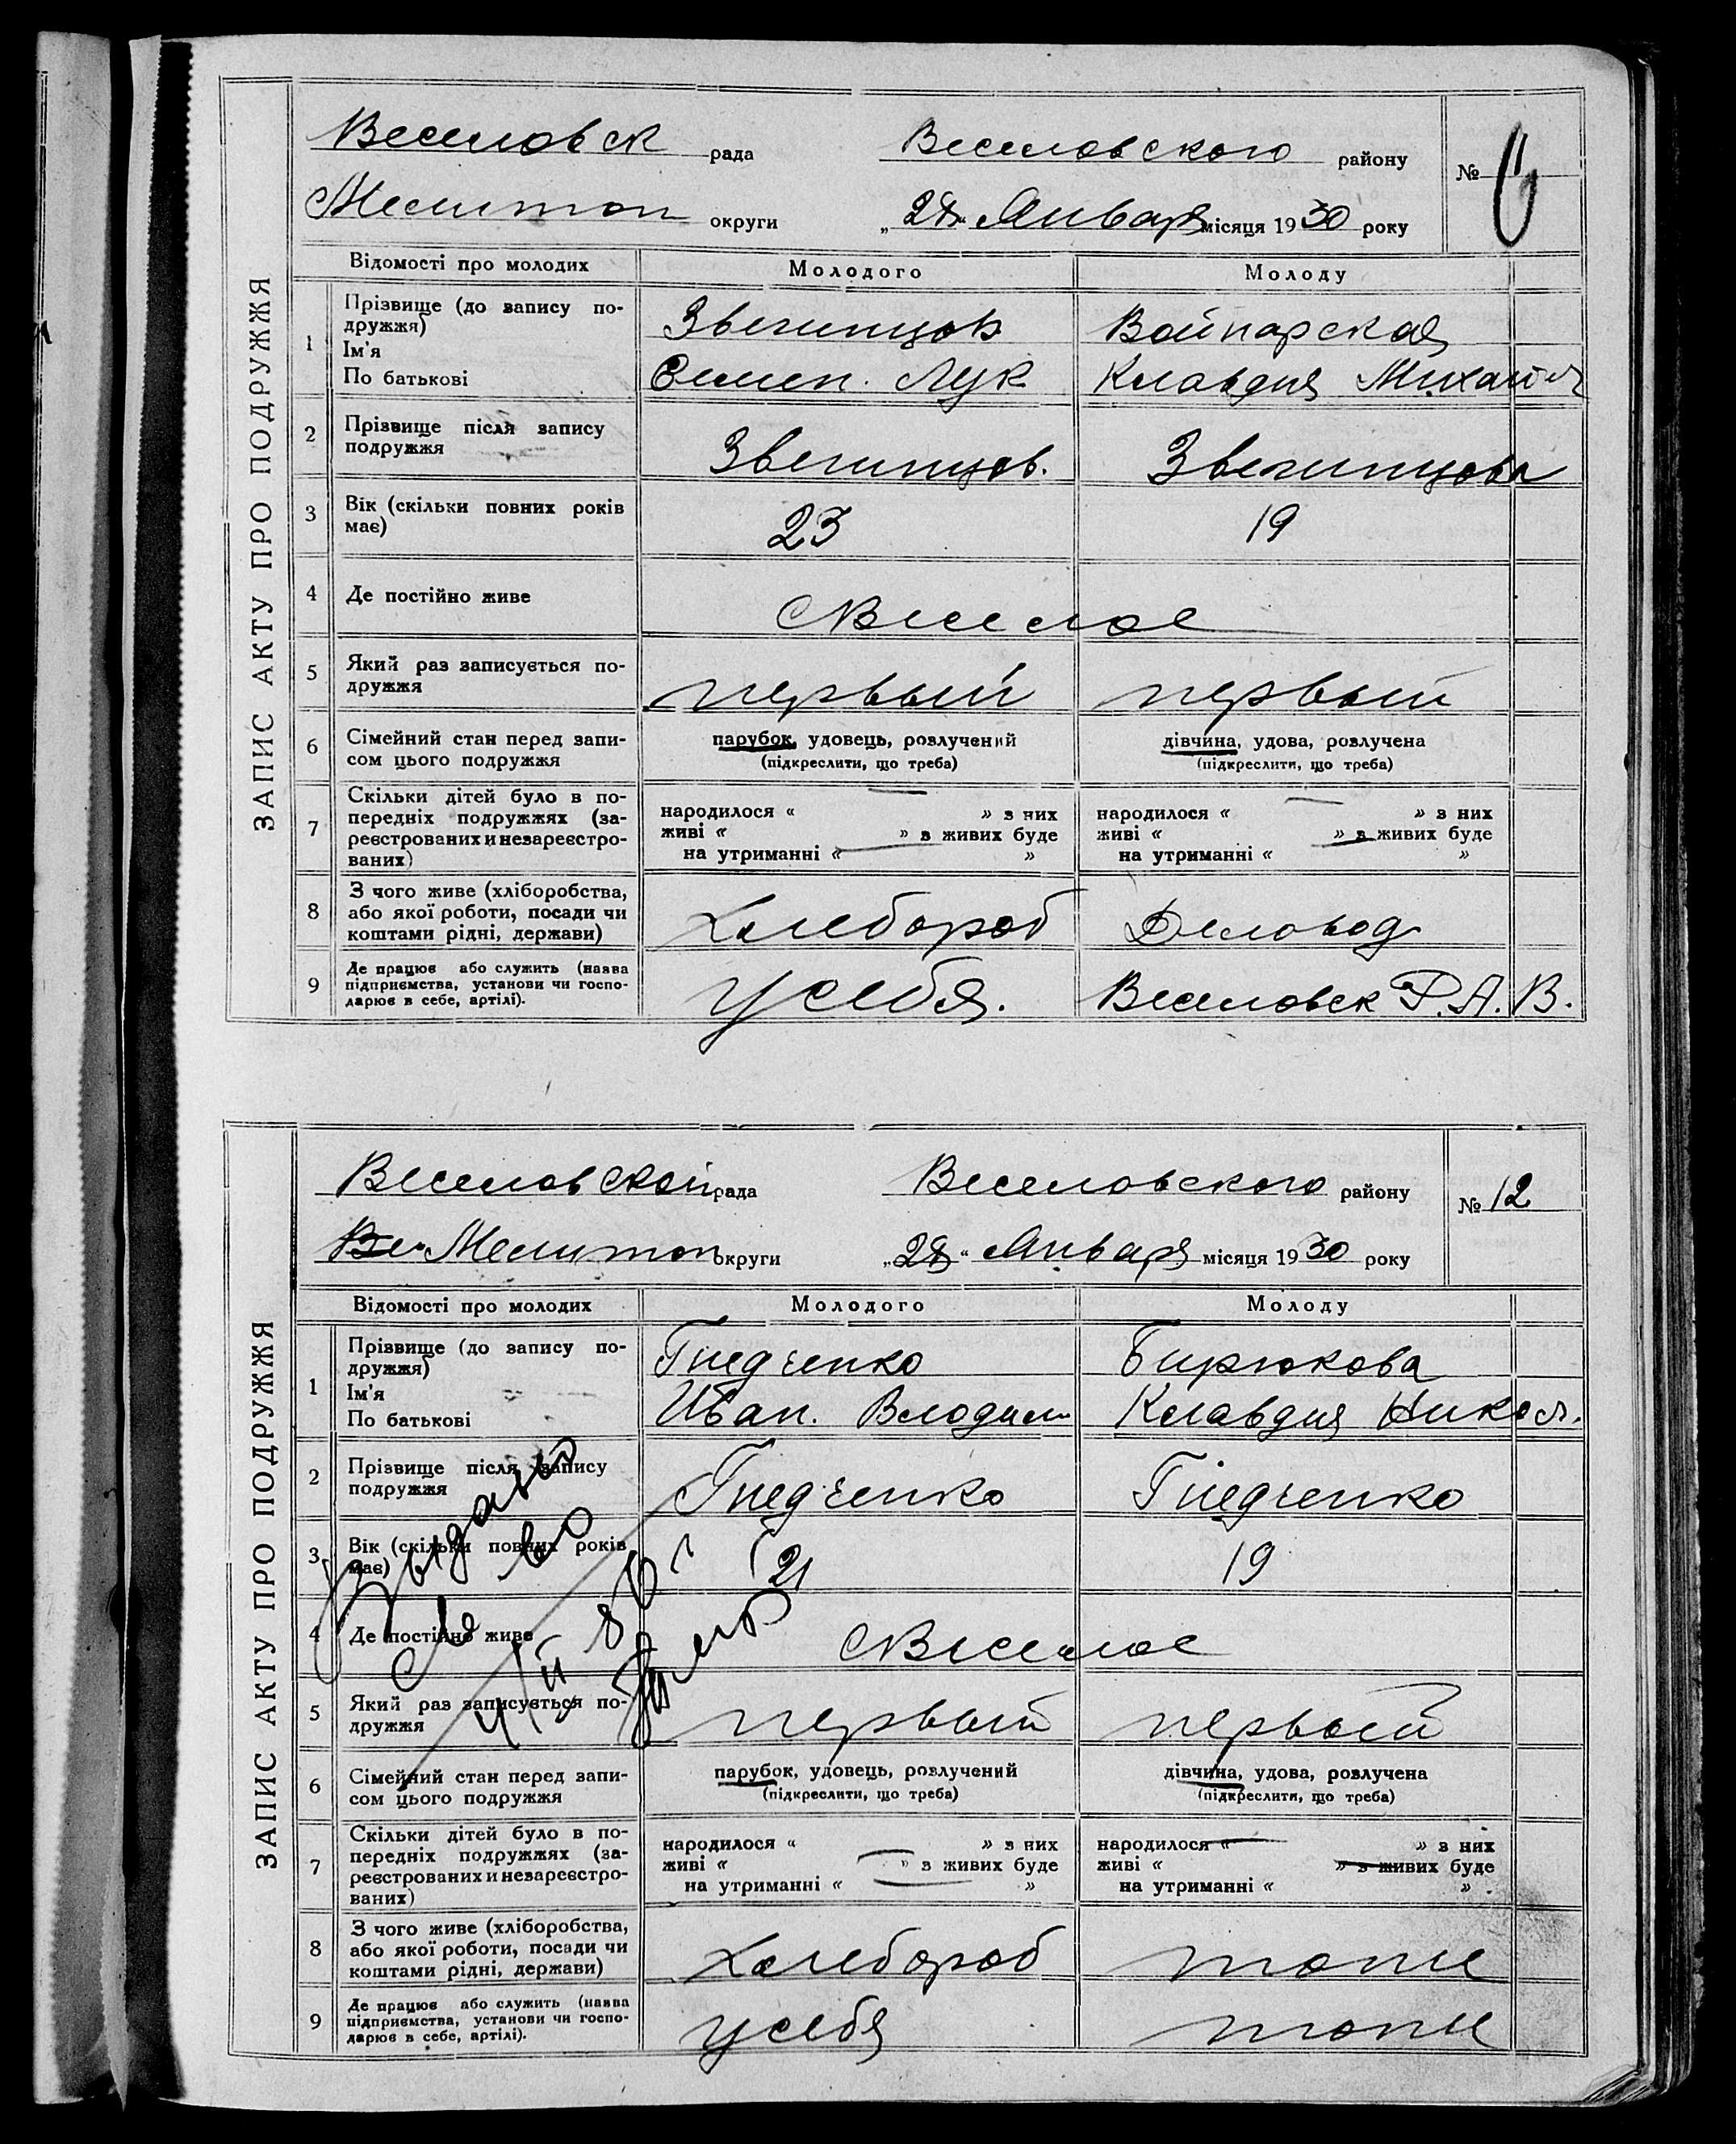 ЗАПИС АКТУ ПРО ПОДРУЖЖЯ
Веселовск рада Веселовского району № 11
Мелитоп округи „28" Января місяця 1930 року
Відомості про молодих Молодого Молоду
1 Прізвище (до запису по-
дружжя) Звегинцов Войнарская
Ім'я
По батькові Семен. Лук Клавдия Михайл
2 Прізвище після запису
подружжя Звегинцов. Звегинцова
3 Вік (скільки повних років
має) 23 19
4 Де постійно живе С Веселое
5 Який раз записується по-
дружжя первый первый
6 Сімейний стан перед запи-
сом цього подружжя
парубок, удовець, розлучений
(підкреслити, що треба)
дівчина, удова, розлучена
(підкреслити, що треба)
7 Скільки дітей було в по-
передніх подружжях (за-
реєстрованих и незареєстро-
ваних)
народилося « » з них
живі « » з живих буде
на утриманні « »
народилося « » з них
живі « » з живих буде
на утриманні « »
8 З чого живе (хліборобства,
або якої роботи, посади чи
коштами рідні, держави) Хлебороб Деловод
9 Де працює або служить (назва
підприємства, установи чи госпо-
дарює в себе, артілі). у себя. Веселовск Р.А.В.
ЗАПИС АКТУ ПРО ПОДРУЖЖЯ
Веселовской рада Веселовского району № 12
Ве Мелитоп округи „28" Января місяця 1930 року
Відомості про молодих Молодого Молоду
1 Прізвище (до запису по-
дружжя) Гнедченко Бирюкова
Ім'я
По батькові Иван. Влодим Клавдия Никол.
2 Прізвище після запису
подружжя Гнедченко Гнедченко
3 Вік (скільки повних років
має) 21 19
4 Де постійно живе С Веселое
5 Який раз записується по-
дружжя первый первый
6 Сімейний стан перед запи-
сом цього подружжя
парубок, удовець, розлучений
(підкреслити, що треба)
дівчина, удова, розлучена
(підкреслити, що треба)
7 Скільки дітей було в по-
передніх подружжях (за-
реєстрованих и незареєстро-
ваних)
народилося « » з них
живі « » з живих буде
на утриманні « »
народилося « » з них
живі « » з живих буде
на утриманні « »
8 З чого живе (хліборобства,
або якої роботи, посади чи
коштами рідні, держави) Хлебороб тоже
9 Де працює або служить (назва
підприємства, установи чи госпо-
дарює в себе, артілі). у себя тоже
Выдано
св во